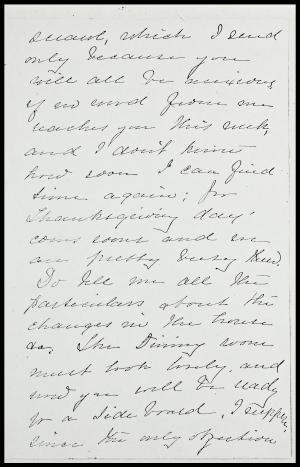 scrawl, which I send
only because you
will all be anxious
if no word from me
reaches you this week,
and I don't know
how soon I can find
time again; for
Thanksgiving day
comes soon and we
are pretty busy then.
Do tell me all the
particulars about the
changes in the house
&c. The Dining room
must look lovely, and
now you will be ready
for a side board, I suppose,
since the only objection